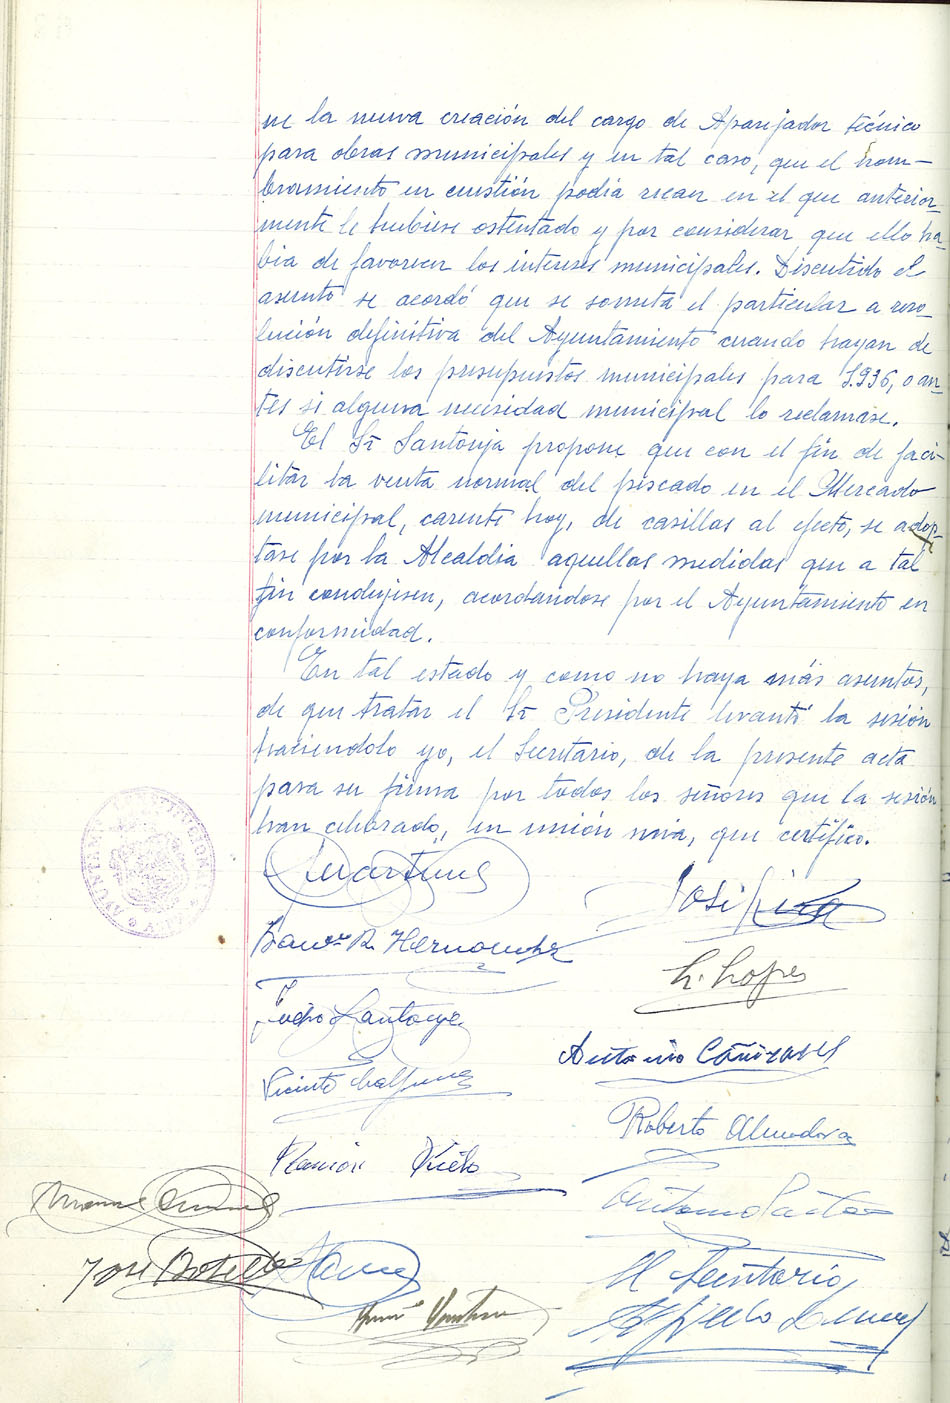 ne la nueva creación del cargo de Aparejador técnico
para obras municipales y en tal caso, que el nom-
bramiento en cuestión podía recaer en el que anterior-
mente le hubiese ostentado y por considerar que ello ha-
bía de favorecer los intereses municipales. Discutido el
asunto se acordó que se someta el particular a reso-
lución definitiva del Ayuntamiento cuando hayan de
discutirse los presupuestos municipales para 1.936, o an-
tes si alguna necesidad municipal lo reclamase.
El Sr Santonja propone que con el fin de faci-
litar la venta normal del pescado en el Mercado
municipal, carente hoy, de casillas al efecto, se adop-
tase por la Alcaldia aquellas medidas que a tal
fin condujesen, acordandose por el Ayuntamiento en
conformidad.
En tal estado y como no haya más asuntos,
de que tratar el Sr Presidente levantó la sesión
haciendolo yo, el Secretario, de la presente acta
para su firma por todos los señores que la sesión
han celebrado, en unión mia, que certifico.
AYUNTAMIENTO CONSTITUCIONAL
Martinez
José
Hernandez
L. Lopez
Pedro Santonja
Antonio Cañizares
Vicente
Roberto Almodovar
Ramón
Antonio
José Botella
El Secretario
Alfredo